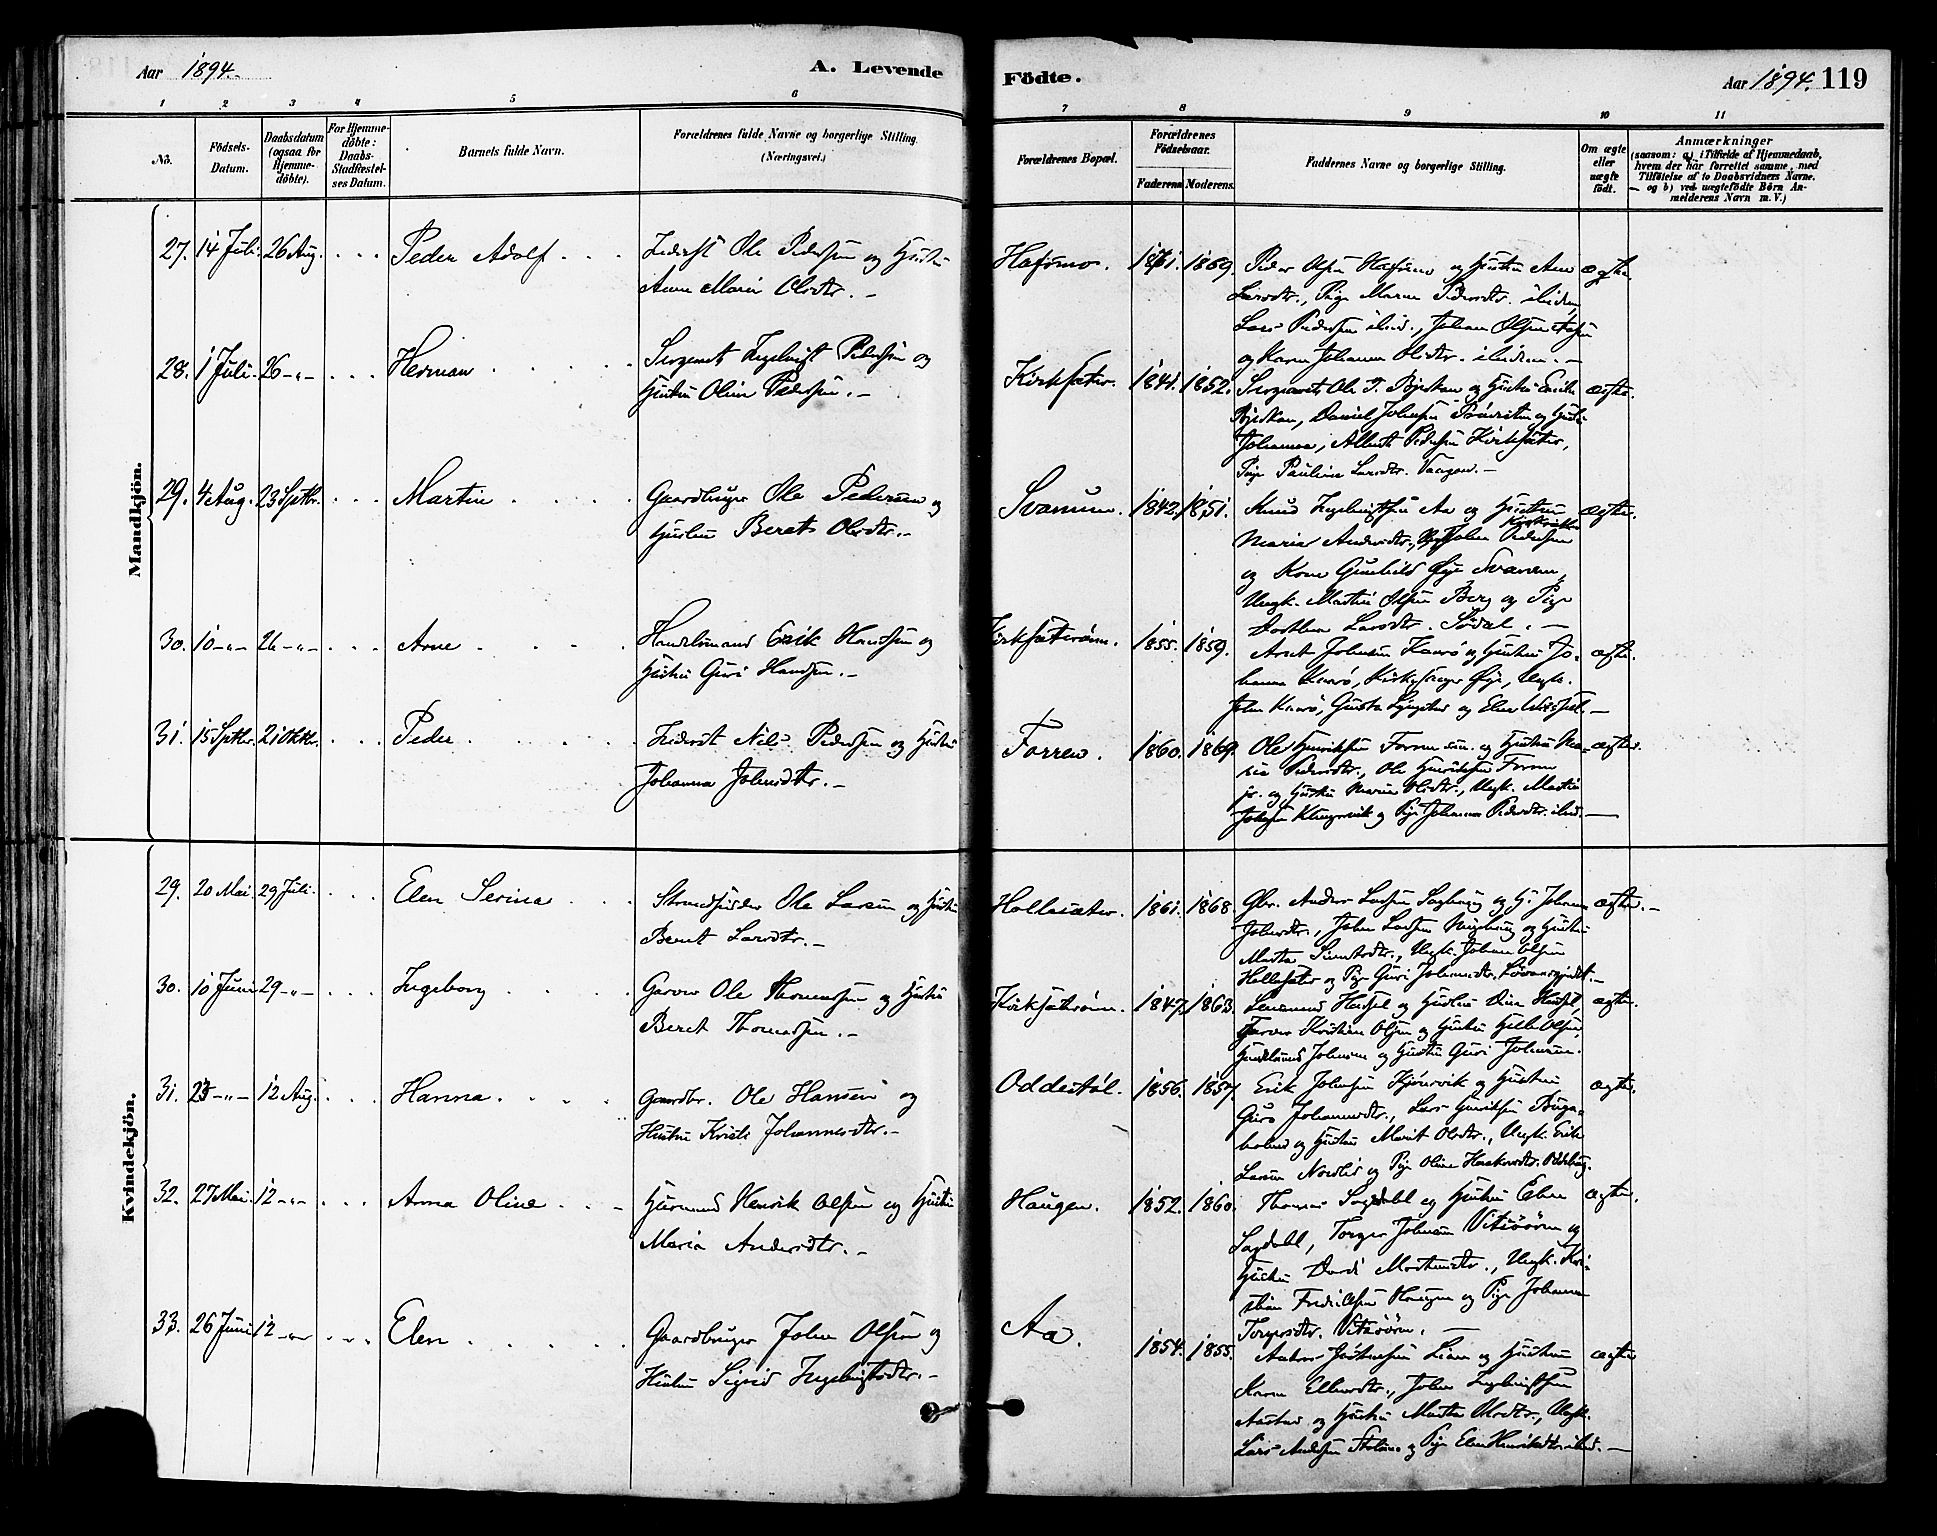 Aar 1894. A. Levende
Födte. Aar 1894. 119
1 2 3 4 5 6
7 8 9 10 11
No.
Födsels-
Datum.
Daabsdatum
(ogsaa for
Hjemme-
döbte).
For Hjemme-
döbte:
Daabs-
Stadfæstel-
ses Datum.
Barnets fulde Navn.
Forældrenes fulde Navne og borgerlige Stilling.
(Næringsvei.)
Forældrenes Bopæl.
Forældrenes
Födselsaar.
Faderens Moderens.
Faddernes Navne og borgerlige Stilling.
Om ægte
eller
uægte
födt.
Anmærkninger
(saasom: a) i Tilfælde af Hjemmedaab,
hvem der har forrettet samme, med
Tilföielse af to Daabsvidners Navne.
— og b) ved uægtefödte Börn An-
melderens Navn m. V.)
Mandkjön.
27. 14 Juli. 26 Aug. Peder Adolf
Ole Pedersen og Hustru
Anne Marie Olsdtr. —
Hafsmo. 1869. ægte.
Peder Olsen Hafsmo og Hustru Ane
Larsdtr., Pige Maren Pedersdtr. ibidem,
Lars Pedersen ibid., Johan Olsen
og Karen Johanna Olsdtr. ibidem. —
28. 1 Juli. 26 -"- Herman
Sergeant Ingebrigt Pedersen og
Hustru Oline Pedersen. —
Kirksæter. 1841. 1852. ægte.
Sergeant Ole T. og Hustru
Daniel Johnsen og Hustru
Johanna, Albert Pedersen Kirksæter,
Pige Pauline Larsdtr. Vaagen. —
29. 4 Aug. 23 Septbr. Martin
Gaardbruger Ole Pedersen og
Hustru Beret Olsdtr. —
Svanum. 1842. 1851. ægte.
Knud Ingebrigtsen Aa og Hustru
Maria Andersdtr., John Pedersen
og Kone Gunhild Øye Svanem,
Ungk. Martin Olsen Berg og Pige
Dorthea Larsdtr. Södal. —
30. 10 -"- 26 -"- Arne
Handelsmand Erik Hansen og
Hustru Guri Hansen. —
Kirksæterøren. 1855. 1859. ægte.
Arnt Johnsen og Hustru Jo-
hanna Kirkesanger Øye, Ungk.
John Gusta og Elen
31. 15 Septbr. 21 Oktbr. Peder
Nils Pedersen og Hustru
Johanna Johnsdtr. —
Forren. 1860. 1869. ægte.
Ole Henriksen Forren sen. og Hustru Ma-
ria Pedersdtr., Ole Henriksen Forren
jr. og Hustru Maria Olsdtr., Ungk. Martin
Johnsen og Pige Johanna Pedersdtr. ibid. —
Kvindekjön.
29. 20 Mai 29 Juli. Elen Serina
Strandsidder Ole Larsen og Hustru
Beret Larsdtr. —
Hollesæter. 1861. 1868 ægte. —
Gbr. Anders Larsen og H. Johanna
Johnsdtr., John Larsen og Hustru
Marta Simonsdtr., Ungk. Johan Olsen
Hollesæter og Pige Guri Johnsdtr.
30. 10 Juni 29 -"- Ingeborg
Garver Ole Thomassen og Hustru
Beret Thomassen. —
Kirksæterøren. 1847. 1863. ægte.
Lensmand og Hustru
Garver Kristian Olsen og Hustru Olsen,
Johnsen og Hustru Guri Johnsen.
31. 23 -"- 12 Aug. Hanna.
Gaardbr. Ole Hansen og
Hustru Kristi Johannesdtr. —
Oddestöl. 1856. 1857. ægte.
Erik Johnsen og Hustru
Guro Johannesdtr., Lars Henriksen
og Hustru Marit Olsdtr., Ungk. Erik
Larsen Nordlid og Pige Oline
32. 27 Mai. 12 -"- Anna Oline
Husmand Henrik Olsen og Hustru
Maria Andersdtr. —
Haugen. 1852. 1860. ægte.
Thomas Sagdahl og Hustru Elen
Sagdahl, Torger Johnsen Vitsöörn og
Hustru Dordi Mortensdtr., Ungk. Kri-
stian Fredriksen Haugen og Pige Johanna
Torgersdtr. Vitsöörn. —
33. 26 Juni 12 -"- Elen
Gaardbruger John Olsen og
Hustru Sigrid Ingebrigtsdtr. —
Aa. 1854. 1855. ægte.
Anders Liom og Hustru
Karen Ellensdtr., John Ingebrigtsen
og Hustru Marta Olsdtr., Ungk.
Lars Andersen og Pige Elen Henriksdtr. ibid. —